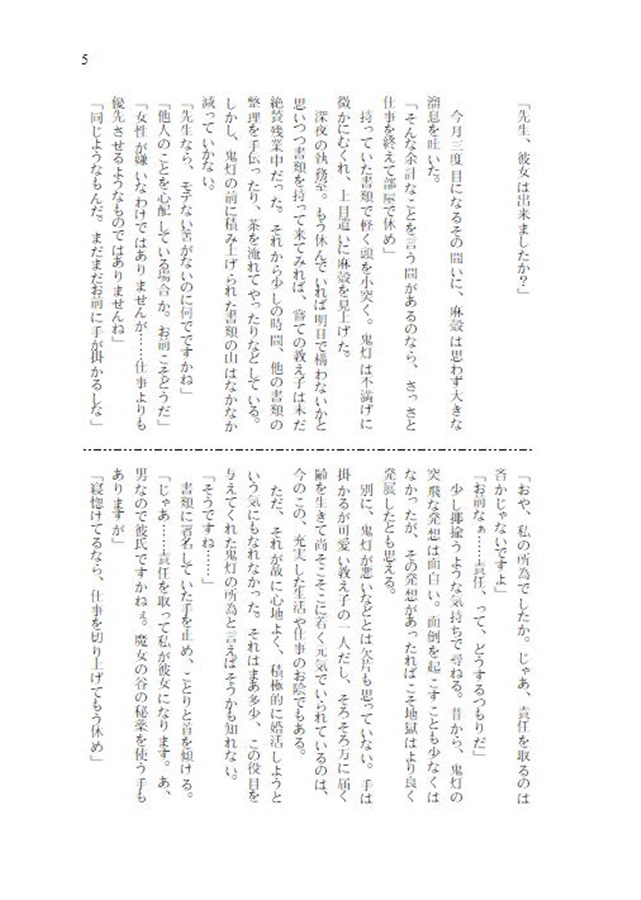 5
「先生、彼女は出来ましたか？」
今月三度目になるその問いに、麻殻は思わず大きな
溜息を吐いた。
「そんな余計なことを言う間があるのなら、さっさと
仕事を終えて部屋で休め」
持っていた書類で軽く頭を小突く。鬼灯は不満げに
微かにむくれ、上目遣いに麻殻を見上げた。
深夜の執務室。もう休んでいれば明日で構わないかと
思いつつ書類を持って来てみれば、嘗ての教え子は未だ
絶賛残業中だった。それから少しの時間、他の書類の
整理を手伝ったり、茶を淹れてやったりなどしている。
しかし、鬼灯の前に積み上げられた書類の山はなかなか
減っていかない。
「先生なら、モテない筈がないのに何でですかね」
「他人のことを心配している場合か。お前こそどうだ」
「女性が嫌いなわけではありませんが……仕事よりも
優先させるようなものではありませんね」
「同じようなもんだ。まだまだお前に手が掛かるしな」
「おや、私の所為でしたか。じゃあ、責任を取るのは
吝かじゃないですよ」
「お前なぁ……責任、って、どうするつもりだ」
少し揶揄うような気持ちで尋ねる。昔から、鬼灯の
突飛な発想は面白い。面倒を起こすことも少なくは
なかったが、その発想があったればこそ地獄はより良く
発展したとも思える。
別に、鬼灯が悪いなどとは欠片も思っていない。手は
掛かるが可愛い教え子の一人だし、そろそろ万に届く
齢を生きて尚そこそこに若く元気でいられているのは、
今のこの、充実した生活や仕事のお陰でもある。
ただ、それが故に心地よく、積極的に婚活しようと
いう気にもなれなかった。それはまあ多少、この役目を
与えてくれた鬼灯の所為と言えばそうかも知れない。
「そうですね……」
書類に署名していた手を止め、ことりと首を傾げる。
「じゃあ……責任を取って私が彼女になります。あ、
男なので彼氏ですかねぇ。魔女の谷の秘薬を使う手も
ありますが」
「寝惚けてるなら、仕事を切り上げてもう休め」